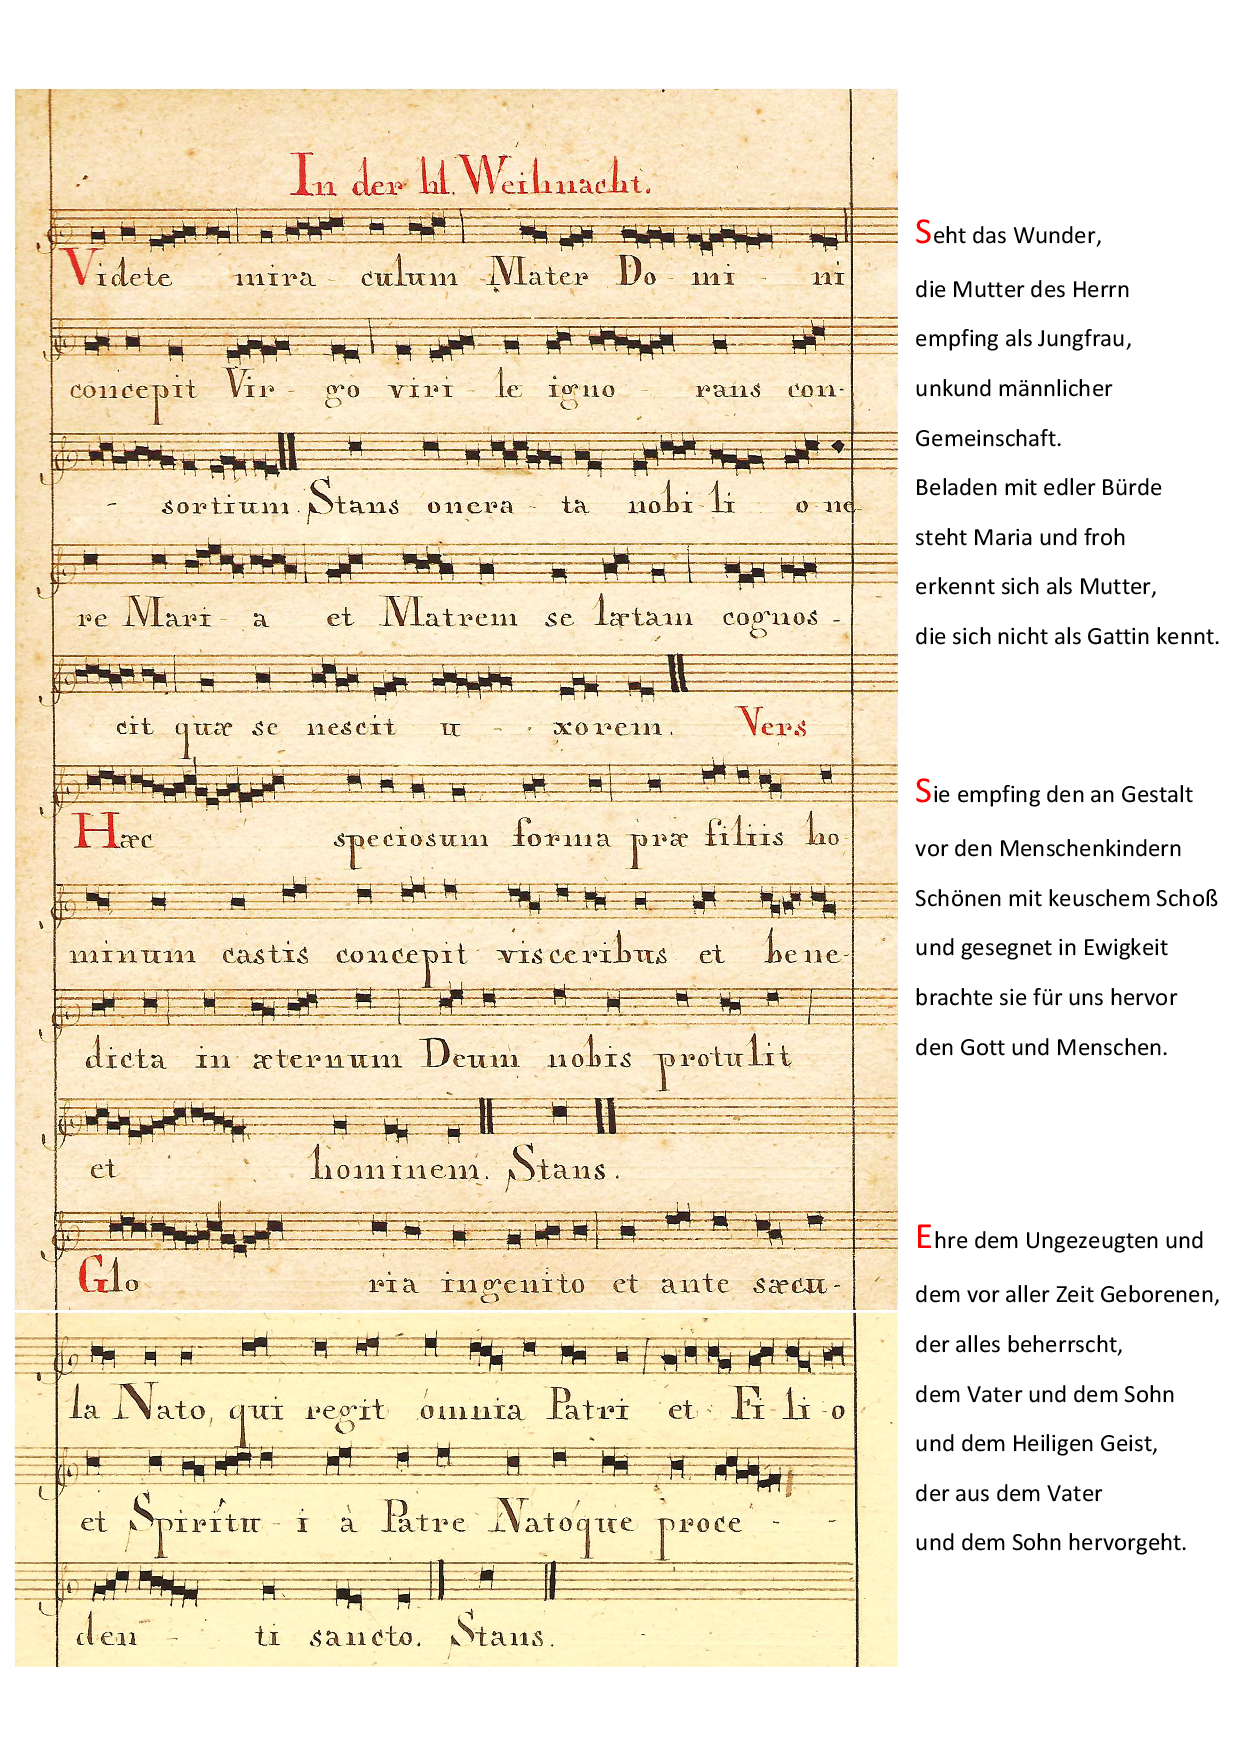 In der hl. Weihnacht.
Videte mira - culum Mater Do - mi - ni
concepit Vir - go viri - le igno - rans con-
- sortium. Stans onera - ta nobi - li o - ne
re Mari - a et Matrem se lætam cognos -
cit quæ se nescit u - - xorem. Vers
Hæc speciosum forma præ filiis ho
minum castis concepit visceribus et bene-
dicta in æternum Deum nobis protulit
et hominem. Stans.
Glo ria ingenito et ante sæcu-
la Nato, qui regit omnia Patri et Fi - li - o
et Spirítu - i à Patre Natóque proce - -
den - ti sancto. Stans.
Seht das Wunder,
die Mutter des Herrn
empfing als Jungfrau,
unkund männlicher
Gemeinschaft.
Beladen mit edler Bürde
steht Maria und froh
erkennt sich als Mutter,
die sich nicht als Gattin kennt.
Sie empfing den an Gestalt
vor den Menschenkindern
Schönen mit keuschem Schoß
und gesegnet in Ewigkeit
brachte sie für uns hervor
den Gott und Menschen.
Ehre dem Ungezeugten und
dem vor aller Zeit Geborenen,
der alles beherrscht,
dem Vater und dem Sohn
und dem Heiligen Geist,
der aus dem Vater
und dem Sohn hervorgeht.